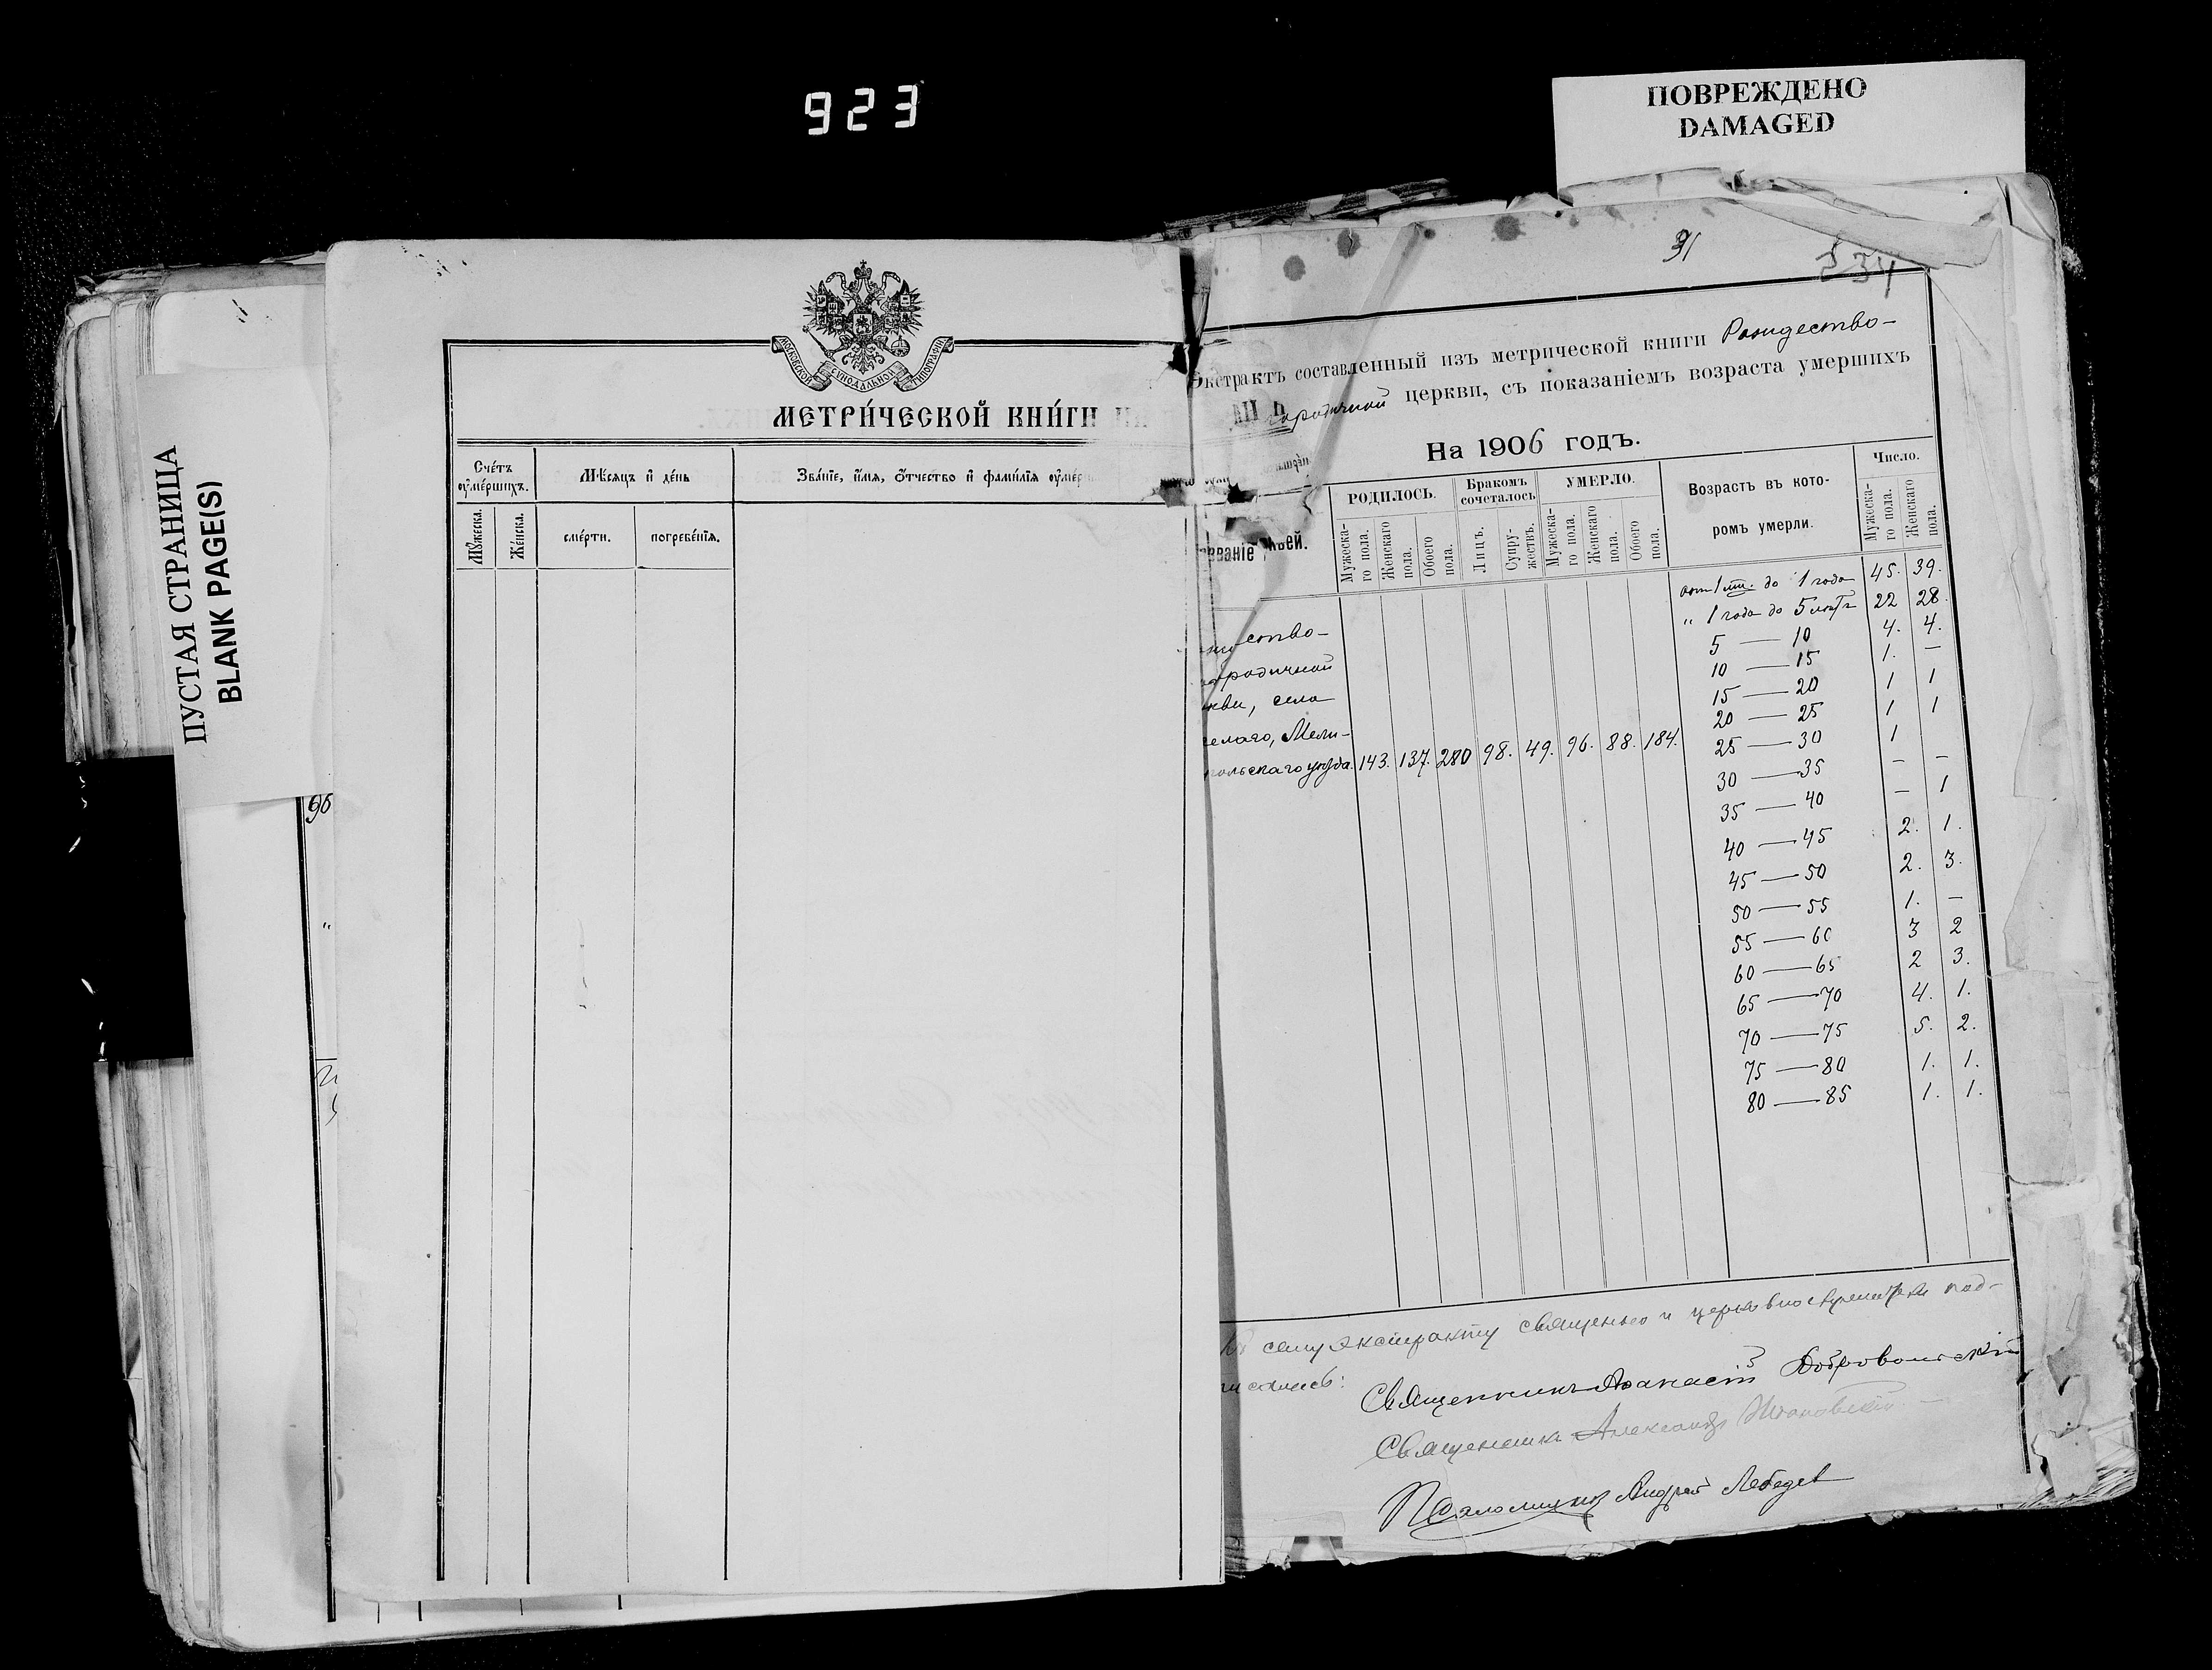 923
ПОВРЕЖДЕНО
DAMAGED
ПУСТАЯ СТРАНИЦА
BLANK PAGE(S)
МОСКОВСКОЙ СУНОДАЛЬНОЙ ТИПОГРАФІИ
МЕТРИ́ЧЕСКОЙ КНИ́ГИ
Сче́тъ оу҆ме́ршихъ.
Мѣ́сяцъ и҆ де́нь
Зва́ніе, и҆́мя, ѻ҆́тчество и҆ фами́лія оу҆ме́р
Му́жеска.
Же́нска.
сме́рти.
погребе́нія.
91
334
Экстрактъ составленный изъ метрической книги Рождество-
городичной церкви, съ показаніемъ возраста умершихъ
На 1906 годъ.
званіе
вей.
РОДИЛОСЬ.
Бракомъ сочеталось
УМЕРЛО.
Возрастъ въ кото-
ромъ умерли.
Число.
Мужеска-
го пола.
Женскаго
пола.
Обоего
пола.
Лицъ.
Супру-
жествъ.
Мужеска-
го пола.
Женскаго
пола.
Обоего
пола.
Мужеска-
го пола.
Женскаго
пола.
ство-
родичной
кви, села
селаго, Мели-
польскаго уѣзда. 143. 137. 280 98. 49. 96. 88. 184.
от 1 до 1 года 45. 39.
" 1 года до 5 лѣтъ 22 28.
5 — 10 4. 4.
10 — 15 1. —
15 — 20 1 1
20 — 25 1 1
25 — 30 1
30 — 35 — —
35 — 40 — 1
40 — 45 2. 1.
45 — 50 2. 3.
50 — 55 1. —
55 — 60 3 2
60 — 65 2 3.
65 — 70 4. 1.
70 — 75 5. 2.
75 — 80 1. 1.
80 — 85 1. 1.
сему экстракту священно и церковнослужители под-
писались:
Священникъ Аѳанасій Добровольскій
Священникъ Александръ
Псаломщикъ Андрей Лебедев